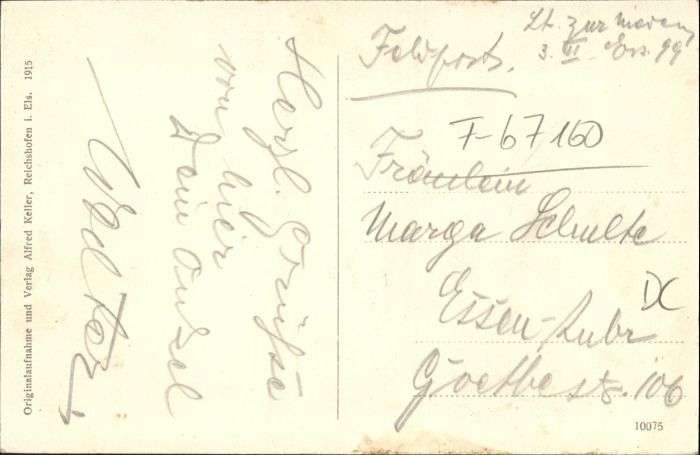 Herzl. Grüße
von hier
Dein Onkel
Walter
Originalaufnahme und Verlag Alfred Keller, Reichshofen i. Els. 1915
Feldpost.
Lt. zur
3. VI. Ers. 99
F-67160
Fräulein
Marga Schulte
DC
Essen-Ruhr
Goethestr. 106
10075